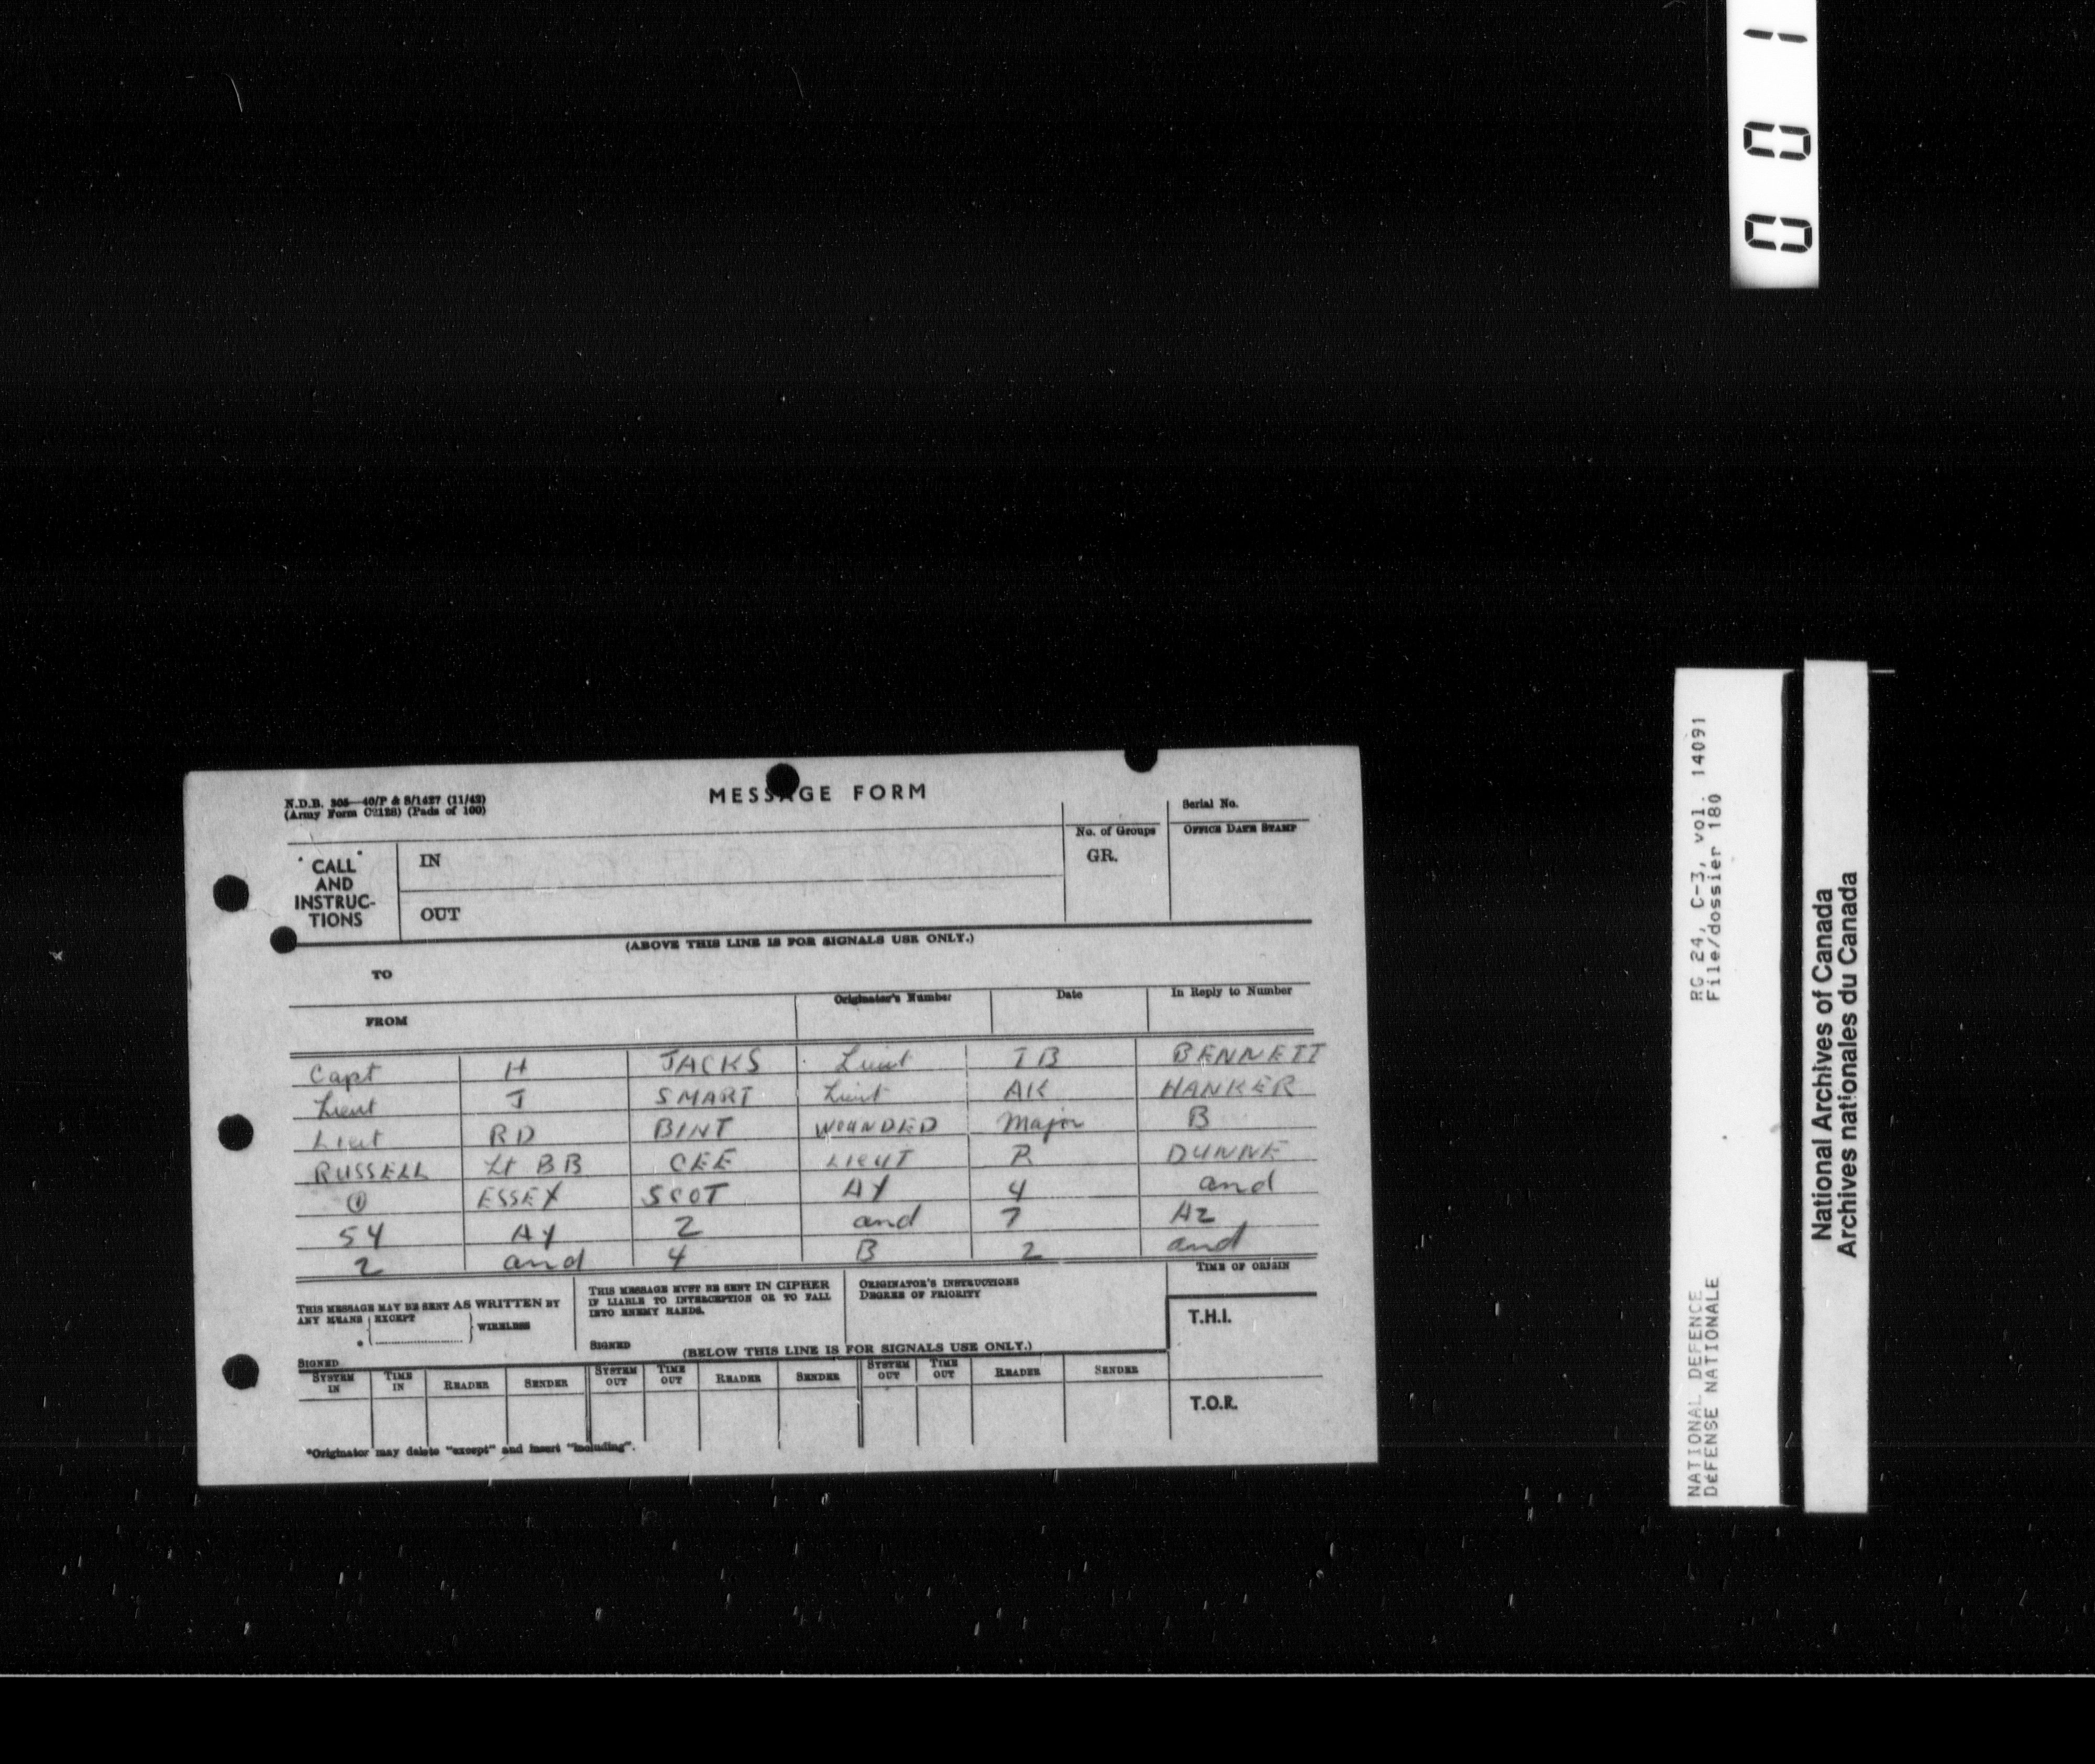 001
N.D.B. 305—40/P & S/1427 (11/42)
(Army Form C2128) (Pads of 100)
MESSAGE FORM
Serial No.
No. of Groups
OFFICE DATE STAMP
CALL AND INSTRUC-TIONS
IN
GR.
OUT
(ABOVE THIS LINE IS FOR SIGNALS USE ONLY.)
TO
Originator's Number Date In Reply to Number
FROM
Capt H JACKS Lieut TB BENNETT
Lieut J SMART Lieut AK HANKER
Lieut RD BINT WOUNDED Major B
RUSSELL Lt BB CEE LIEUT R DUNNE
① ESSEX SCOT AY 4 and
54 AY 2 and 7 AZ
2 and 4 B 2 and
THIS MESSAGE MAY BE SENT AS WRITTEN BY
ANY MEANS EXCEPT
WIRELESS
SIGNED
THIS MESSAGE MUST BE SENT IN CIPHER
IF LIABLE TO INTERCEPTION OR TO FALL
INTO ENEMY HANDS.
SIGNED
ORIGINATOR'S INSTRUCTIONS
DEGREE OF PRIORITY
TIME OF ORIGIN
T.H.I.
(BELOW THIS LINE IS FOR SIGNALS USE ONLY.)
SYSTEM IN TIME IN READER SENDER SYSTEM OUT TIME OUT READER SENDER SYSTEM OUT TIME OUT READER SENDER
T.O.R.
*Originator may delete "except" and insert "including".
NATIONAL DEFENCE RG 24, C-3, vol. 14091
DéFENSE NATIONALE File/dossier 180
National Archives of Canada
Archives nationales du Canada